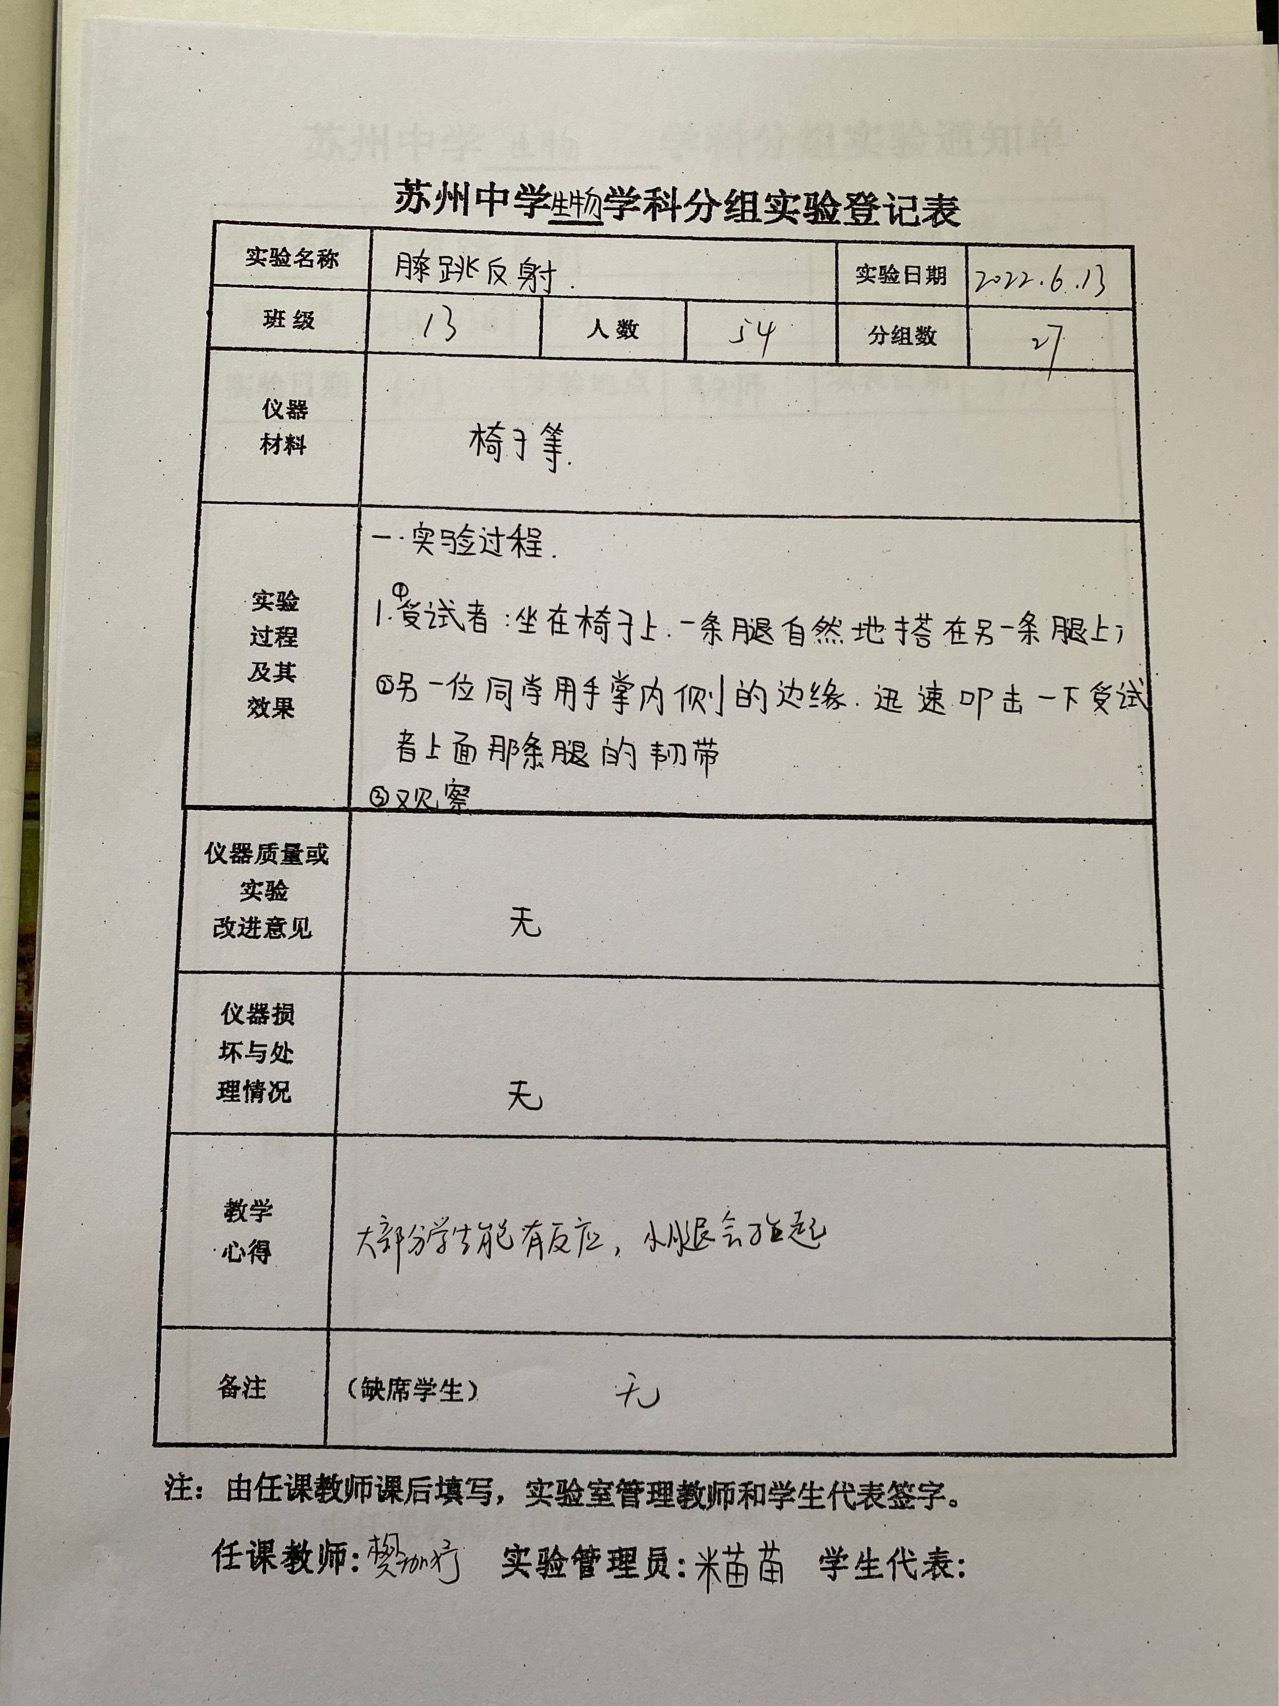 苏州中学生物学科分组实验登记表
实验名称 膝跳反射. 实验日期 2022.6.13
班级 13 人数 54 分组数 27
仪器
材料
椅子等.
实验
过程
及其
效果
一.实验过程.
1.①受试者:坐在椅子上.一条腿自然地搭在另一条腿上;
②另一位同学用手掌内侧的边缘.迅速叩击一下受试
者上面那条腿的韧带
③观察
仪器质量或
实验
改进意见
无
仪器损
坏与处
理情况
无
教学
心得
大部分学生能有反应,小腿会抬起
备注 (缺席学生) 无
注:由任课教师课后填写,实验室管理教师和学生代表签字。
任课教师: 实验管理员:米苗苗 学生代表:
苏州中学 生物 学科分组实验通知单
实验日期 实验地点